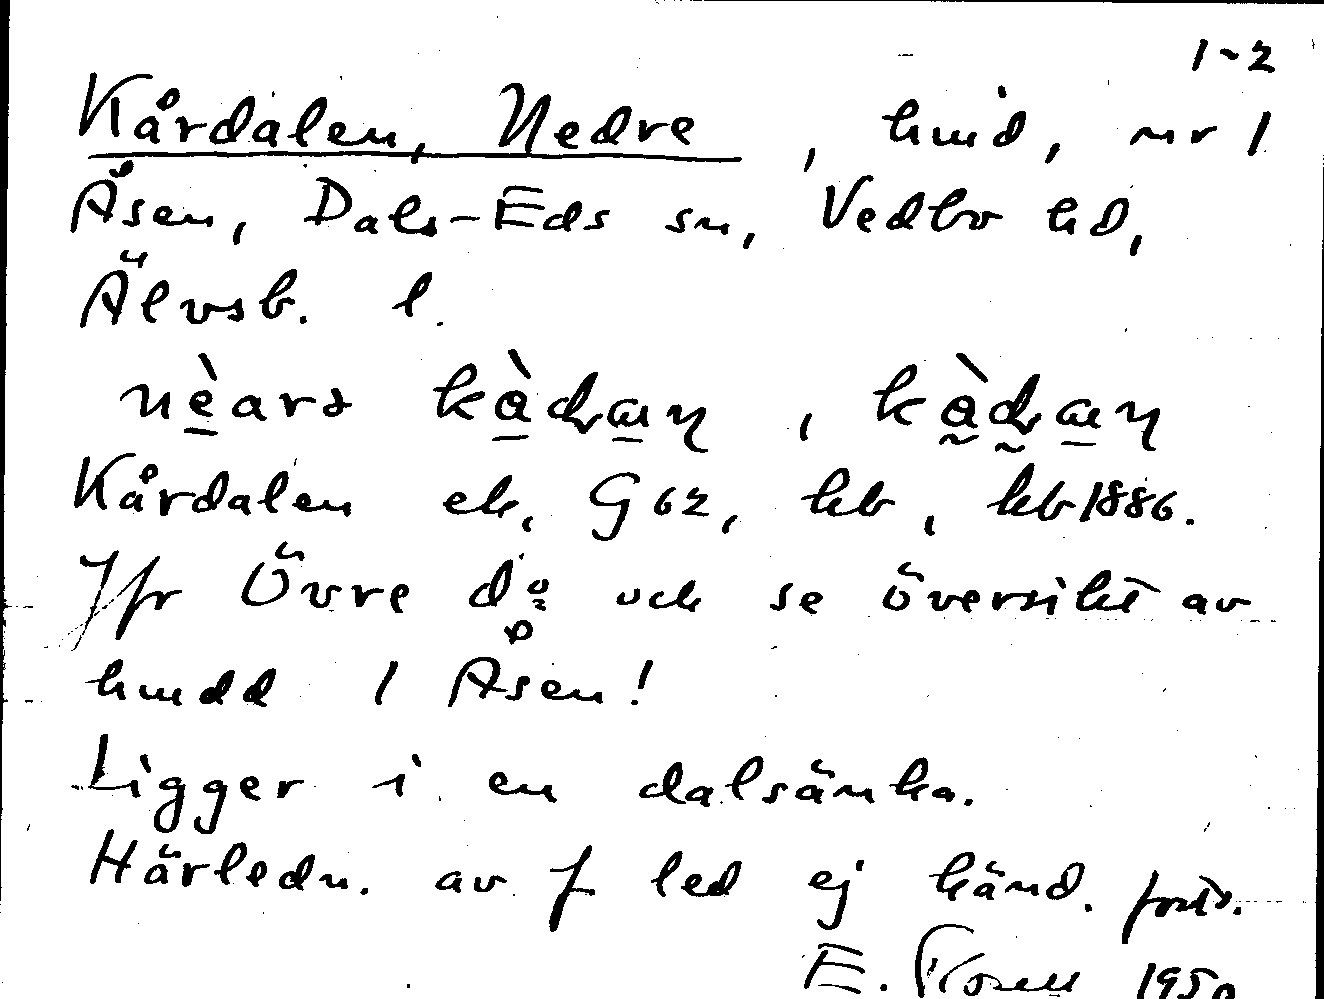 1-2
Kårdalen, Nedre, hmd, nr 1
Åsen, Dals-Eds sn, Vedbo hd,
Älvsb. l.
Kårdalen ek, G 62, kb, kb 1886.
Jfr Övre do och se översikt av
hmdd 1 Åsen!
Ligger i en dalsänka.
Härledn. av f led ej känd. forts.
E. 1950